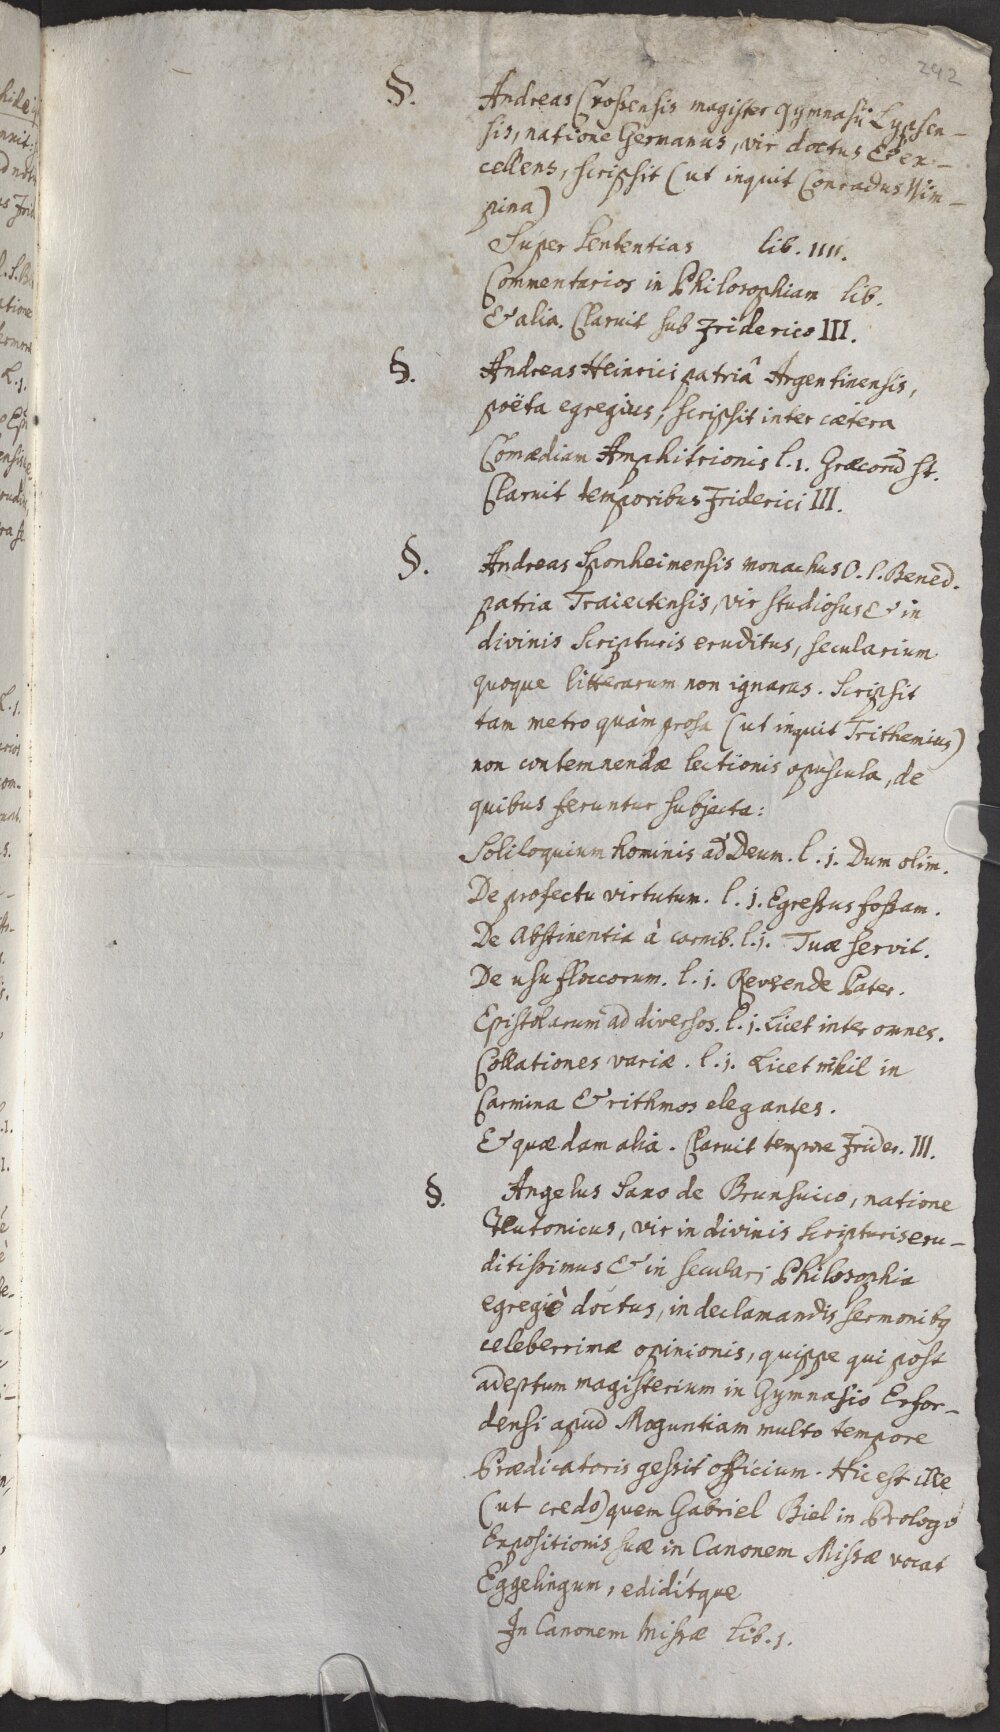 242
§. Andreas Croßensis magister gymnasii Lypsen-
sis, natione Germanus, vir doctus & ex-
cellens, scripsit (ut inquit Conradus Wim-
pina)
Super Sententias lib. IIII.
Commentarios in Philosophiam lib.
& alia. Claruit sub Friderico III.
§. Andreas Heinrici patriâ Argentinensis,
poëta egregius, scripsit inter cætera
Comædiam Amphitrionis l. 1. Græcorũ st.
Claruit temporibus Friderici III.
§. Andreas Sponheimensis monachus O. S. Bened.
patria Traiectensis, vir studiosus & in
divinis Scripturis eruditus, secularium
quoque litterarum non ignarus. Scripsit
tam metro quàm prosa (ut inquit Trithemius)
non contemnendæ lectionis opuscula, de
quibus feruntur subjecta:
Soliloquium hominis ad Deum. l. j. Dum olim.
De profectu virtutum. l. j. Egressus fossam.
De Abstinentia à carnib. l. j. Tuæ servit.
De usu floccorum. l. j. Reverende Pater.
Epistolarum ad diversos. l. j. Licet inter omnes.
Collationes variæ. l. j. Licet nihil in
Carmina & rithmos elegantes.
& quædam alia. Claruit tempore Frider. III.
§. Angelus Saxo de Brunsuico, natione
Teutonicus, vir in divinis Scripturis eru-
ditissimus & in seculari Philosophia
egregiè doctus, in declamandis sermonibq
celeberrimæ opinionis, quippe qui post
adeptum magisterium in Gymnasio Erfor-
densi apud Moguntiam multo tempore
Prædicatoris gessit officium. Hic est ille
(ut credo) quem Gabriel Biel in Prologo
Expositionis suæ in Canonem Missæ vocat
Eggelingum, ediditque
In Canonem Missæ lib. 1.